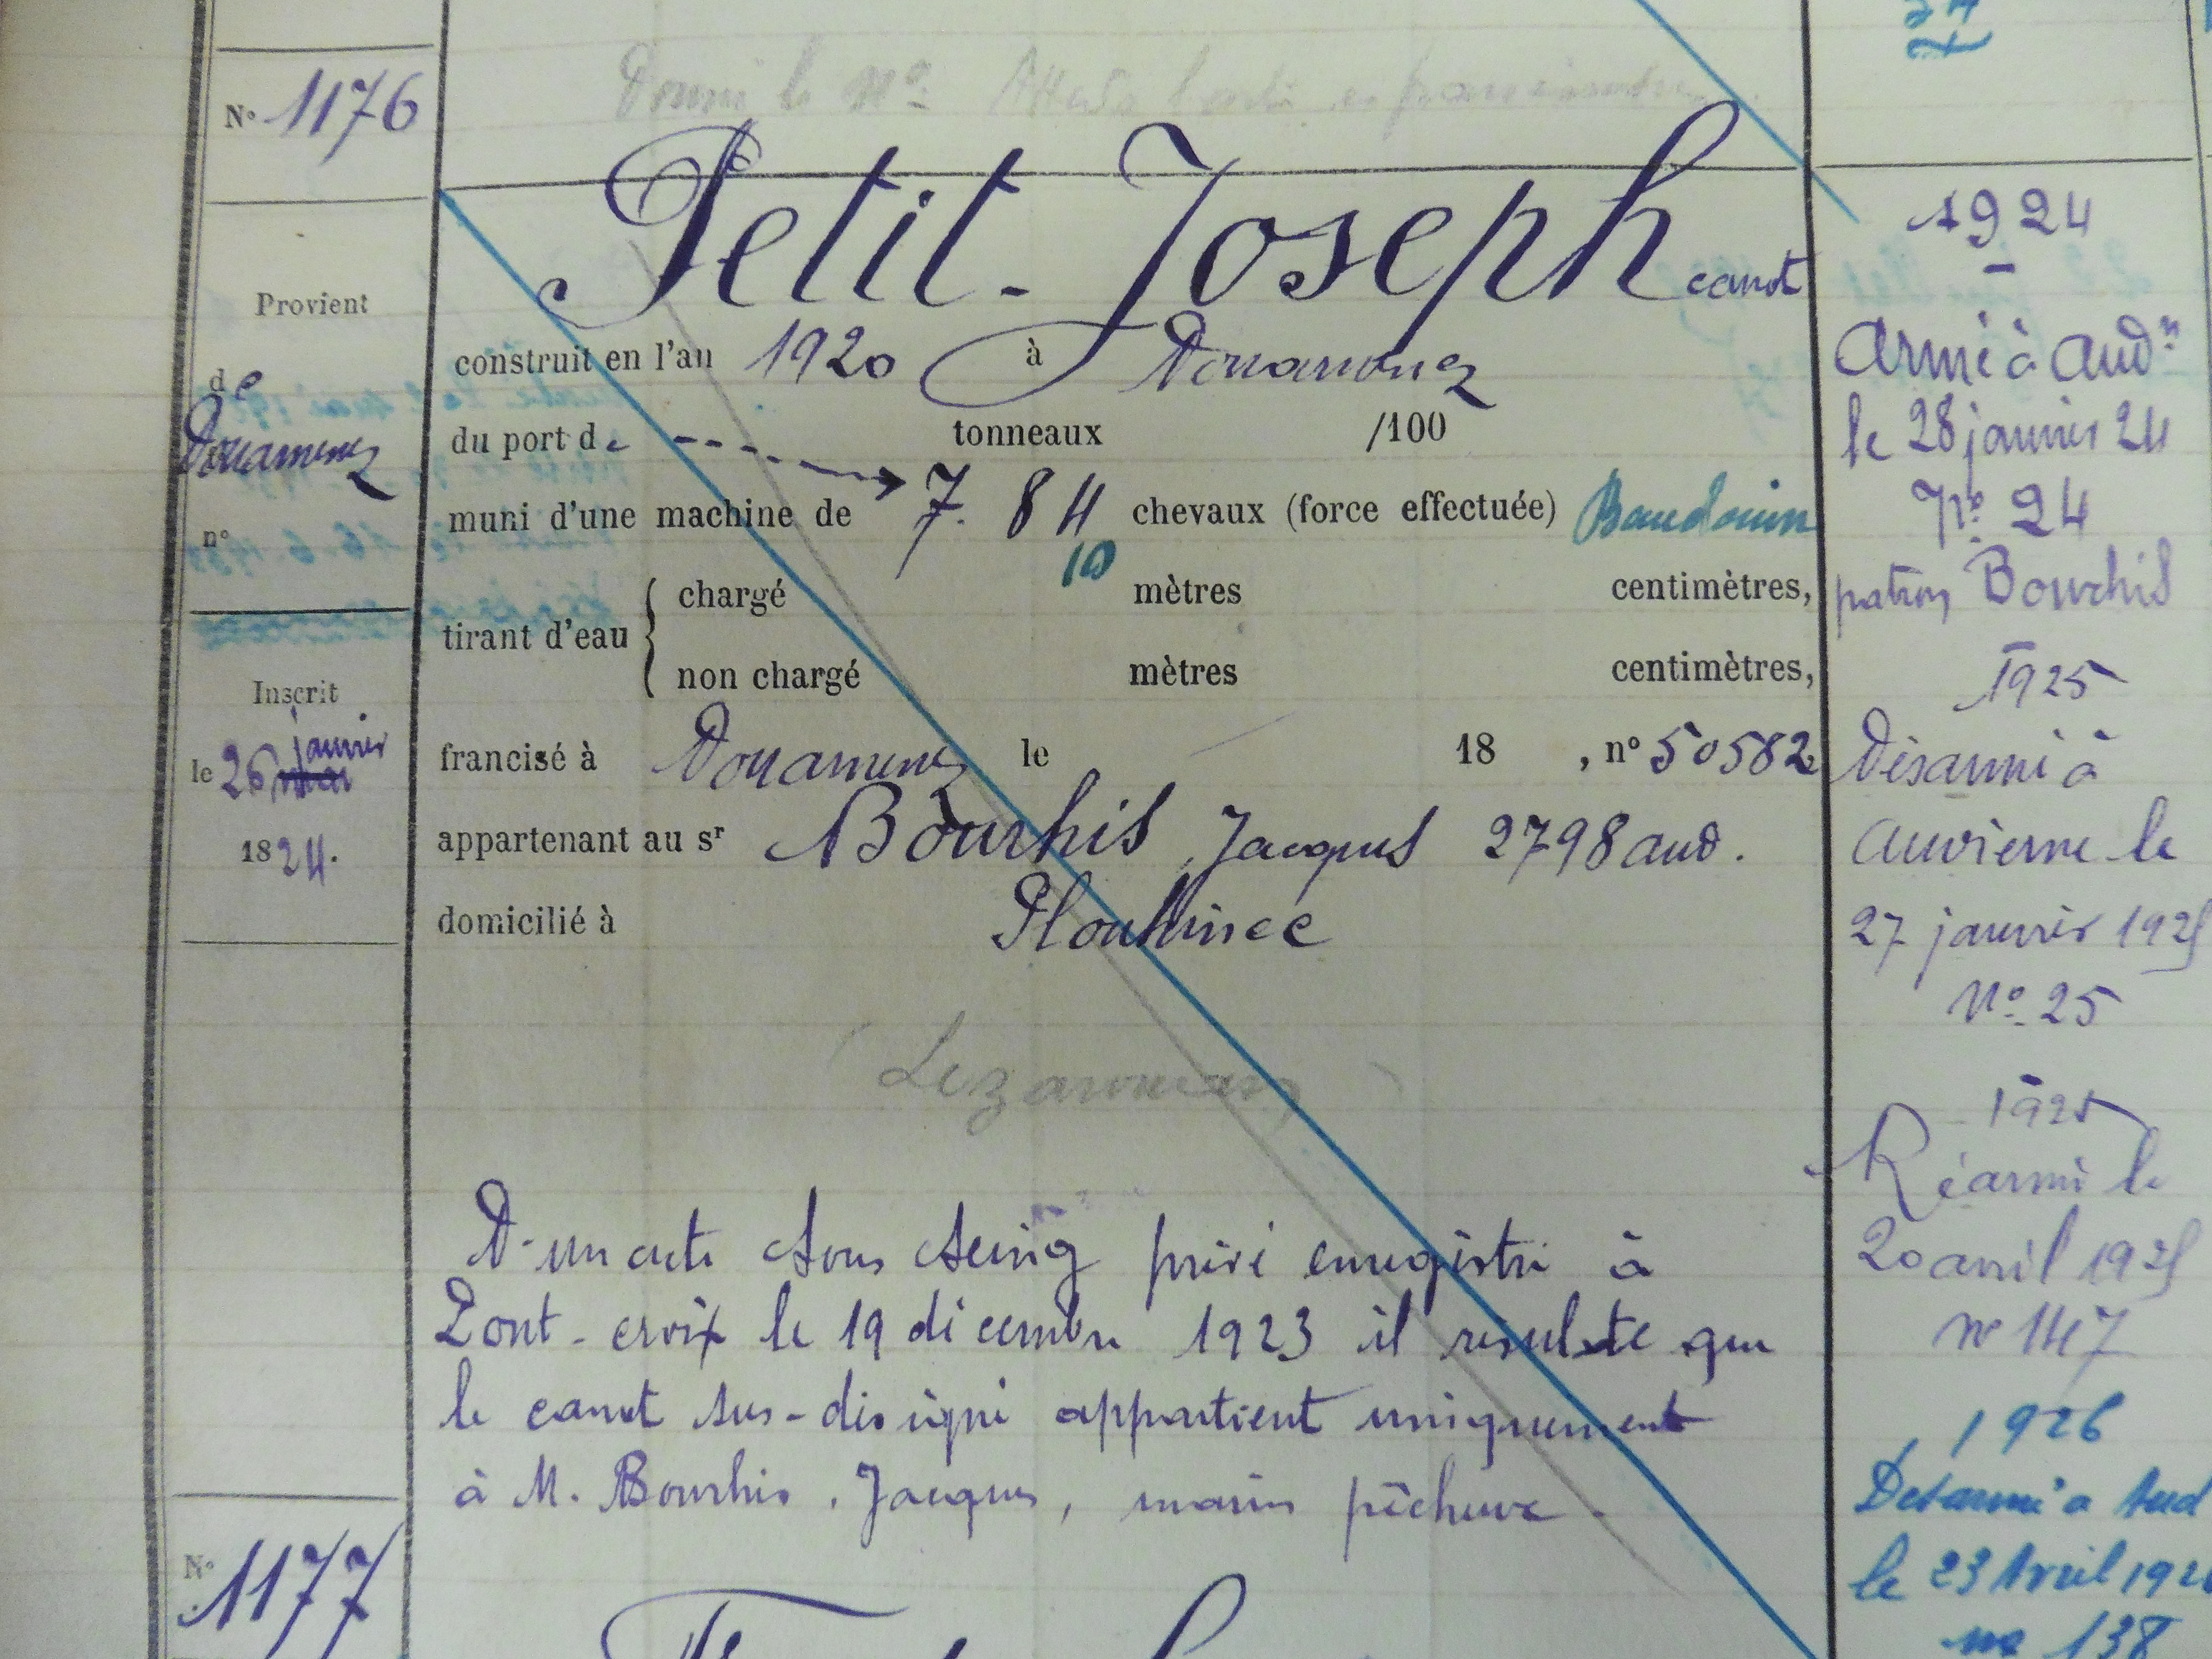 N° 1176
Donné le N°
Petit-Joseph canot
Provient
de
Douarnenez
n°
Inscrit
le 26 janvier
1824.
construit en l'an 1920 à Douarnenez
du port de tonneaux /100
muni d'une machine de 7. 84 chevaux (force effectuée) Baudouin
10
tirant d'eau
chargé mètres centimètres,
non chargé mètres centimètres,
francisé à Douarnenez le 18 , n° 50582
appartenant au sr Bourhis, Jacques 2798 aud.
domicilié à Plouhinec
D'un acte sous seing privé enregistré à
Pont-croix le 19 décembre 1923 il résulte que
le canot sus-désigné appartient uniquement
à M. Bourhis, Jacques, marin pêcheur.
1924
Armé à Aud.n
le 28 janvier 24
N° 24
patron Bourhis
1925
Désarmé à
Audierne le
27 janvier 1925
N° 25
1925
Réarmé le
20 avril 1925
n° 147
1926
Désarmé à Aud
le 23 Avril 192
no 138
N° 1177